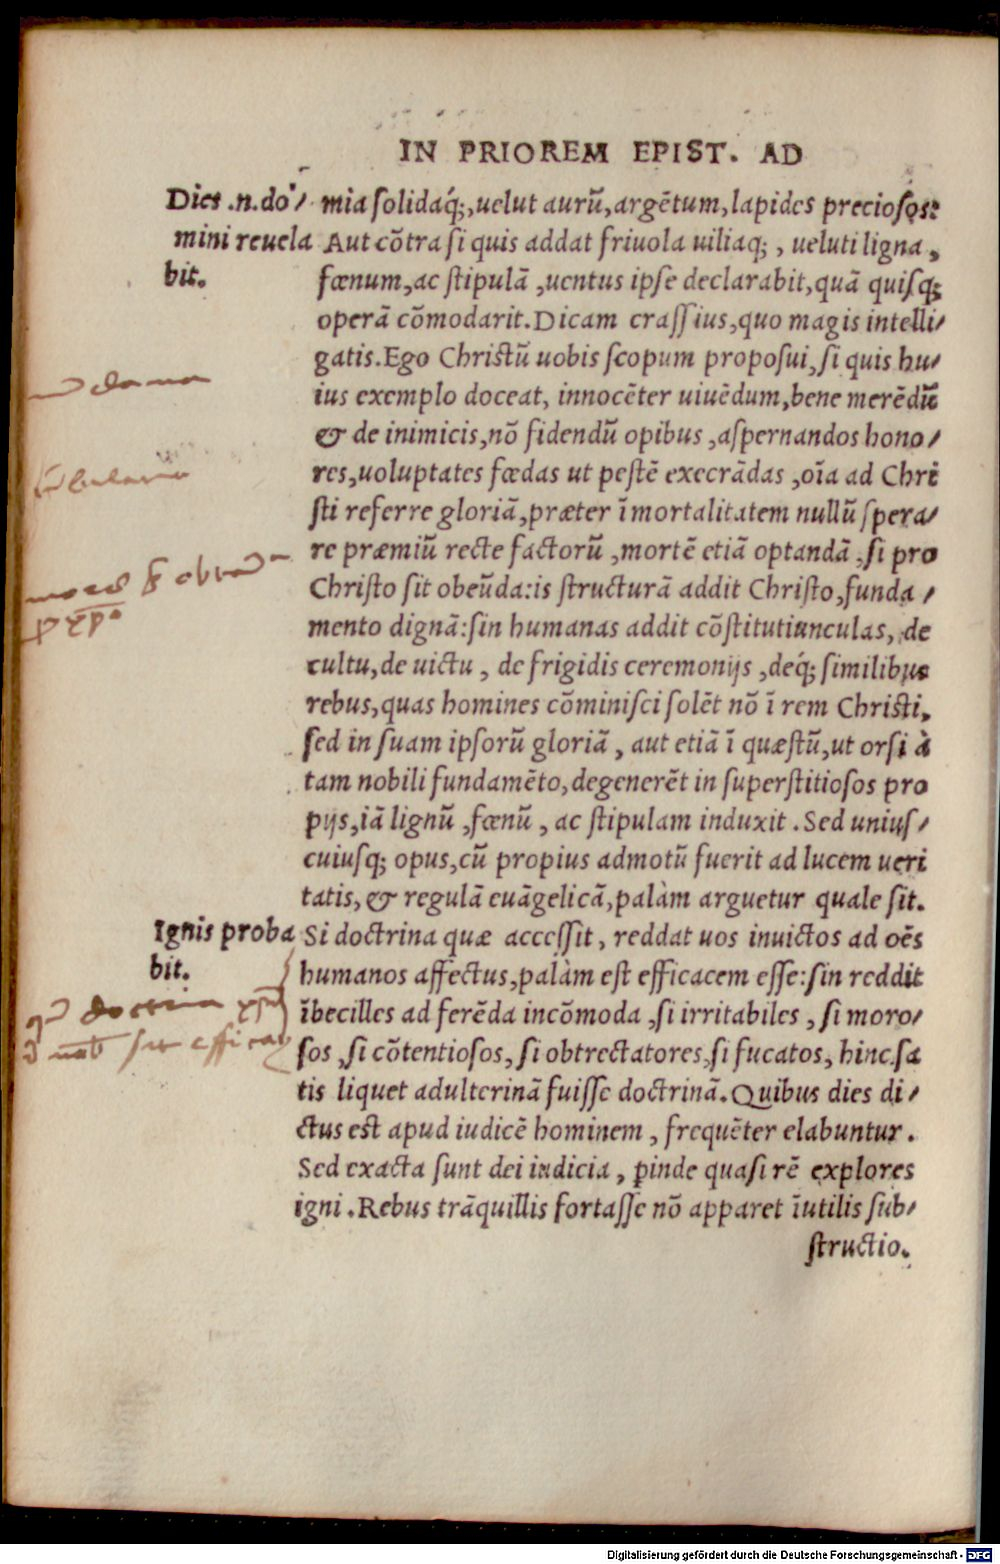 IN PRIOREM EPIST. AD
Dies .n.do⸗
mini reuela
bit.
mia solidaq́;,uelut aurũ,argẽtum,lapides preciosos:
Aut cõtra si quis addat friuola uiliaq; , ueluti ligna,
fœnum,ac stipulã ,uentus ipse declarabit,quã quisq;
operã cõmodarit.Dicam crassius,quo magis intelli⸗
gatis.Ego Christũ uobis scopum proposui,si quis hu⸗
ius exemplo doceat, innocẽter uiuẽdum,bene merẽdũ
& de inimicis,nõ fidendũ opibus ,aspernandos hono⸗
res,uoluptates fœdas ut pestẽ execrãdas ,oĩa ad Chri
sti referre gloriã,præter ĩmortalitatem nullũ spera⸗
re præmiũ recte factorũ ,mortẽ etiã optandã ,si pro
Christo sit obeũda:is structurã addit Christo,funda⸗
mento dignã:sin humanas addit cõstitutiunculas, de
cultu,de uictu , de frigidis ceremonijs ,deq́; similibus
rebus,quas homines cõminisci solẽt nõ ĩ rem Christi,
sed in suam ipsorũ gloriã , aut etiã ĩ quæstũ,ut orsi à
tam nobili fundamẽto,degenerẽt in superstitiosos pro
pijs,iã lignũ ,fœnũ , ac stipulam induxit . Sed unius⸗
cuiusq; opus,cũ propius admotũ fuerit ad lucem ueri
tatis, & regulã euãgelicã,palàm arguetur quale sit.
Ignis proba
bit.
Si doctrina quæ accessit, reddat uos inuictos ad oẽs
humanos affectus,palàm est efficacem esse:sin reddit
ĩbecilles ad ferẽda incõmoda ,si irritabiles , si moro⸗
sos ,si cõtentiosos, si obtrectatores,si fucatos, hinc sa
tis liquet adulterinã fuisse doctrinã.Quibus dies di⸗
ctus est apud iudicẽ hominem , frequẽter elabuntur.
Sed exacta sunt dei iudicia , ꝑinde quasi rẽ explores
igni .Rebus trãquillis fortasse nõ apparet ĩutilis sub⸗
structio.
doctrina
sit efficax
Digitalisierung gefördert durch die Deutsche Forschungsgemeinschaft - DFG